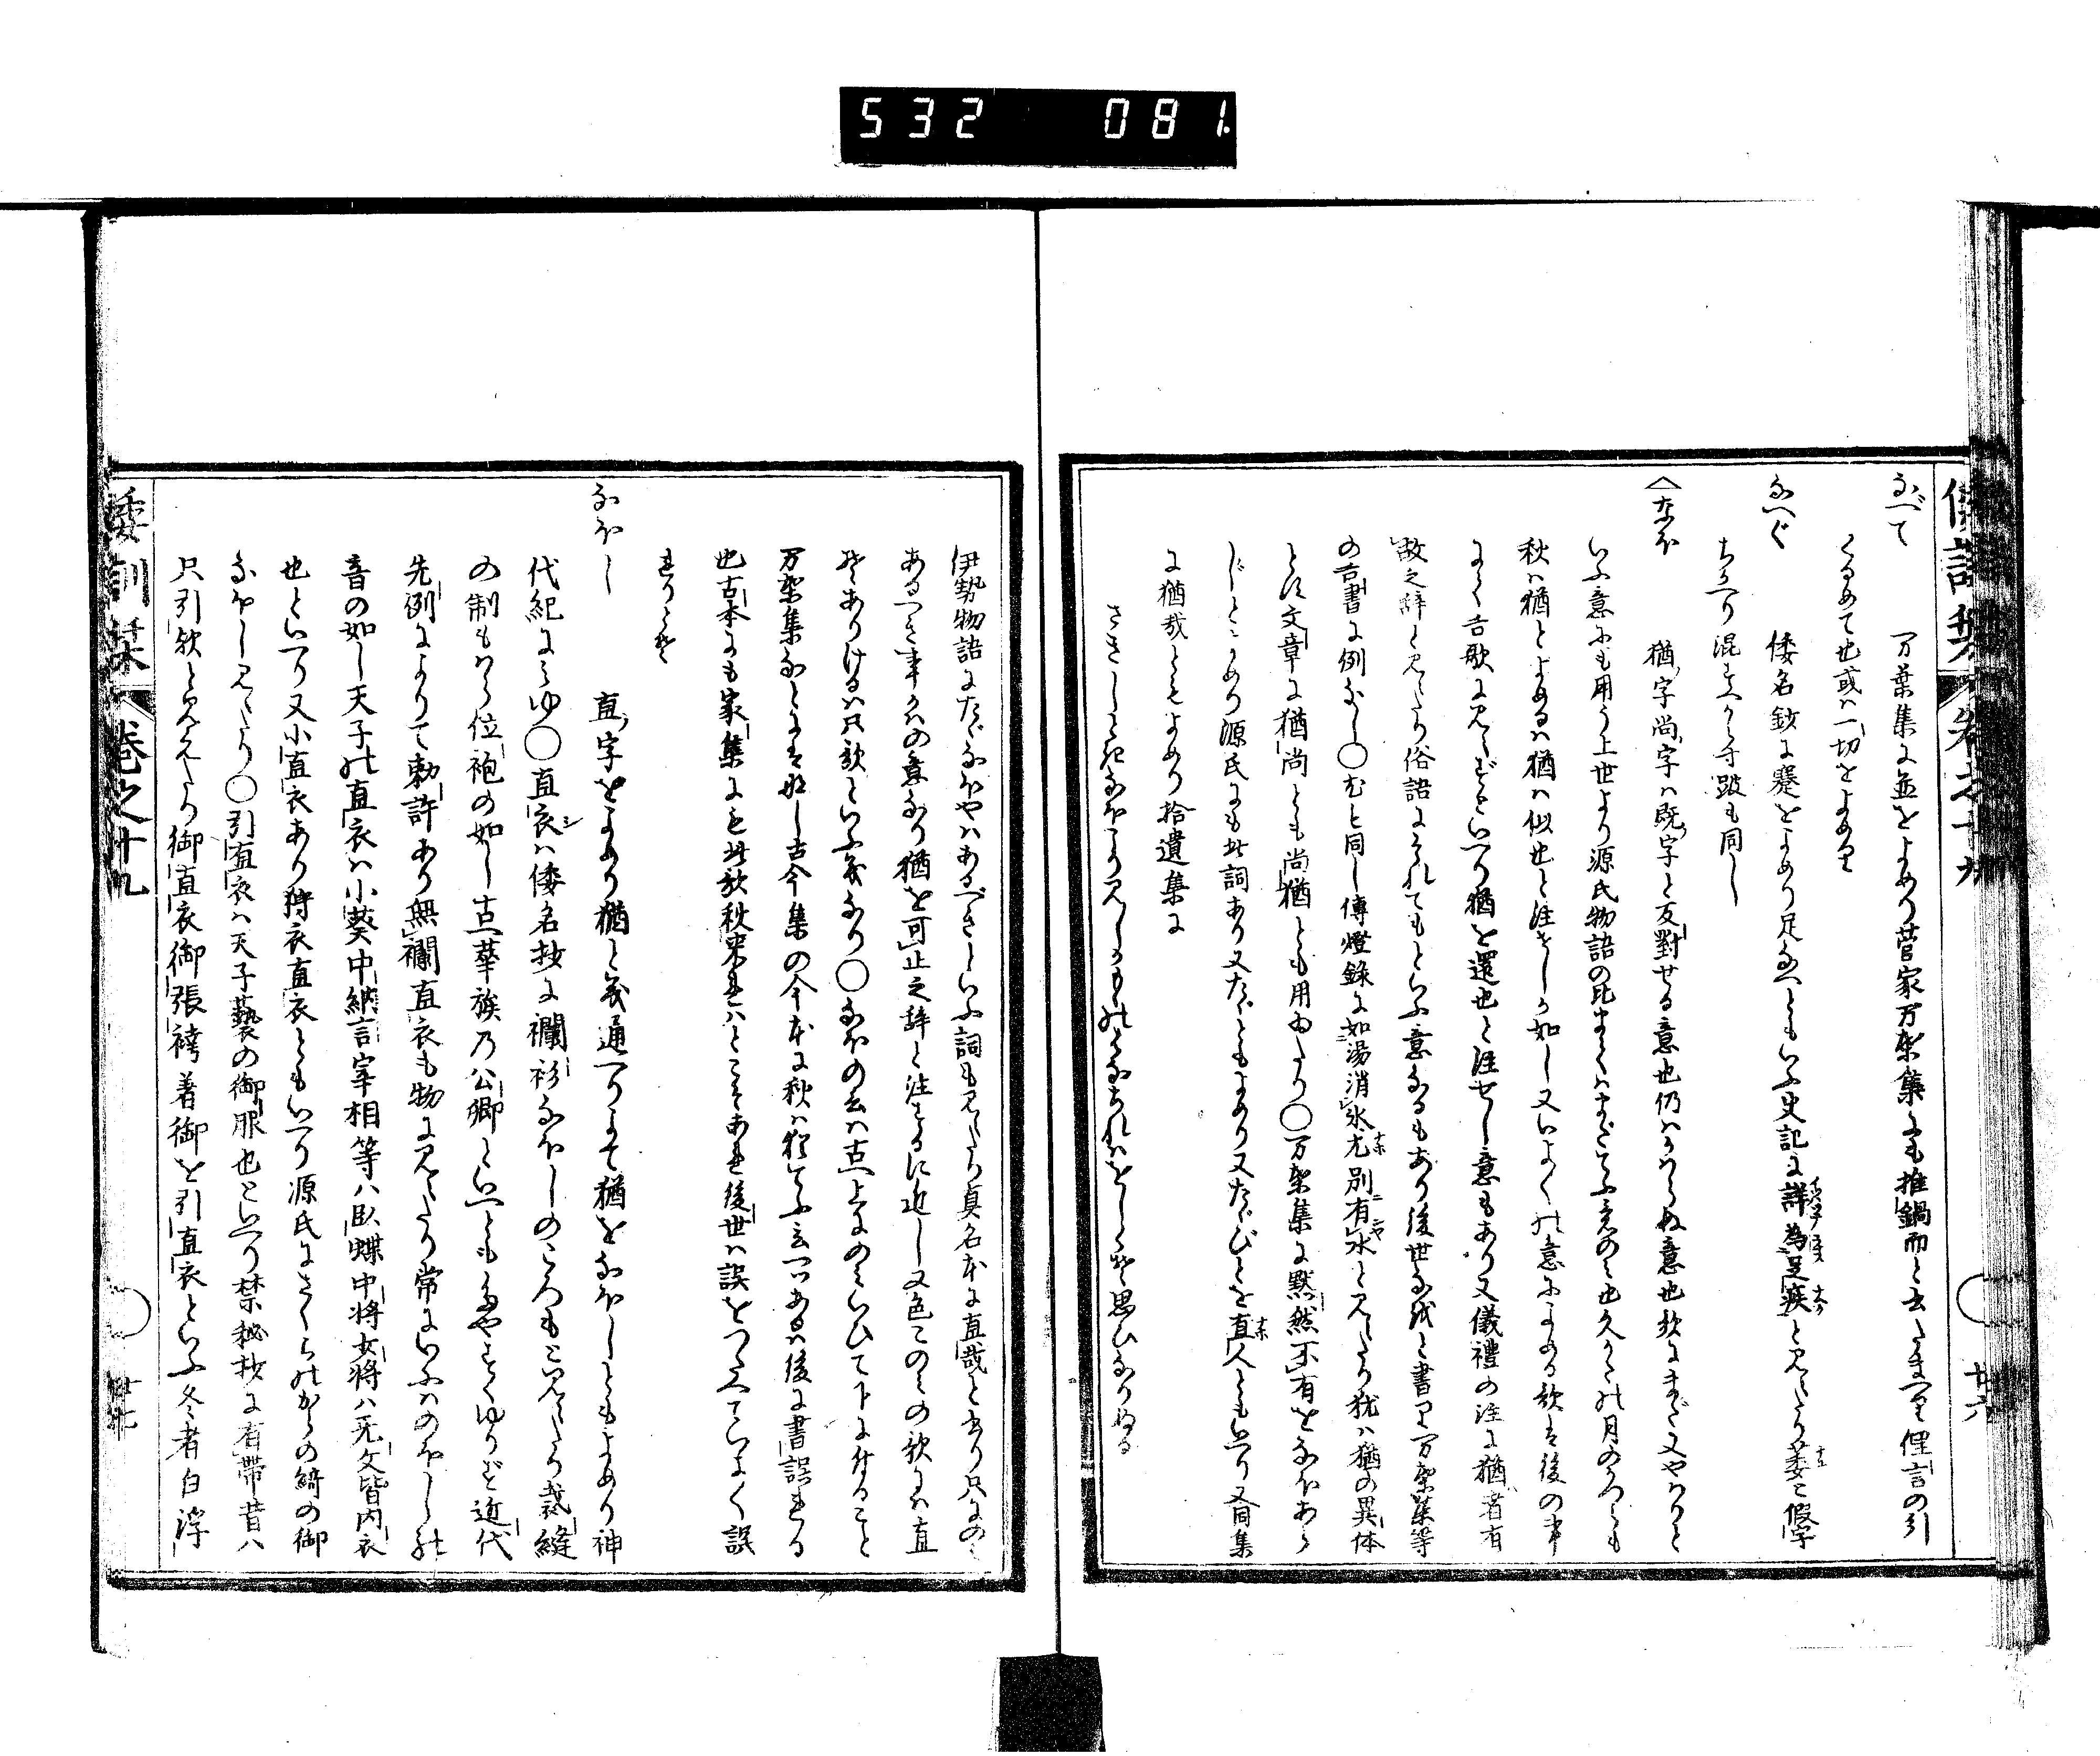 532 081.
倭訓栞 巻之十九 廿六
なべて 万葉集に並をよめり菅家万葉集にも推鍋而と書たまへり俚言の引
くるめて也或ハ一切をよめり
なへぐ 倭名鈔に蹇をよめり足なへともいふ史記に躄為足疾と見えたり萎と假字
ちかへり混すへからず跛も同し
なほ 猶字尚字ハ既字と反對せる意也仍ハかはらぬ意也歌にまだ又やはりと
いふ意にも用う上世より源氏物語の比まてハまだてふ意のミ也久かたの月のころも
秋ハ猶とよめるハ猶ハ似也と注せしか如し又いよ〱の意によめる歌ハ後の事
にて古歌に見えずといへり猶を還也と注せし意もあり又儀禮の注に猶者有
故之辞と見えたり俗語にそれでもといふ意なるもあり後世な越と書り万葉集等
の古書に例なし○むと同し傳燈録に如湯消氷尤別有氷と見えたり犹ハ猶の異体
とそ文章に猶尚とも尚猶とも用ゐたり○万葉集に黙然不有をなほあら
じとよめり源氏にも此詞あり又たゞともよめり又たゞびとを直人ともいへり又同集
に猶哉ともよめり拾遺集に
伊勢物語にたゞなほやハあるべきといふ詞も見えたり真名本に直哉と書り只にのミ
あるへき事かハの意なり猶を可止之辞と注するに近し又色このミの歌にハ直
そありけるハ只歌といふ義なり○なほの云ハ古へ上にのミいひて下に付ること
万葉集なとにハ無し古今集の今本に秋ハ猶てふ云つゝあるハ後に書誤れる
也古本にも家集にも此歌秋来れハとこそあれ後世ハ誤をつたへていよ〱誤
れりとそ
なほし 直字をよめり猶と義通へりよて猶をなほしともよめり神
代紀にミゆ○直衣ハ倭名抄に襴衫なほしのころもと見えたり裁縫
の制もはら位袍の如し古へ華族乃公卿といへともたやすくゆりず近代
先例によりて勅許あり無襴直衣も物に見えたり常にいふハのほしの
音の如し天子の直衣ハ小葵中納言宰相等ハ臥蝶中将女将ハ无文皆内衣
也といへり又小直衣あり狩衣直衣ともいへり源氏にさくらのからの綺の御
なほしと見えたり○引直衣ハ天子褻の御服也といへり禁秘抄に有帯昔ハ
只引歟と見えたり御直衣御張袴着御を引直衣といふ冬者白浮
倭訓栞 巻之十九 廿七